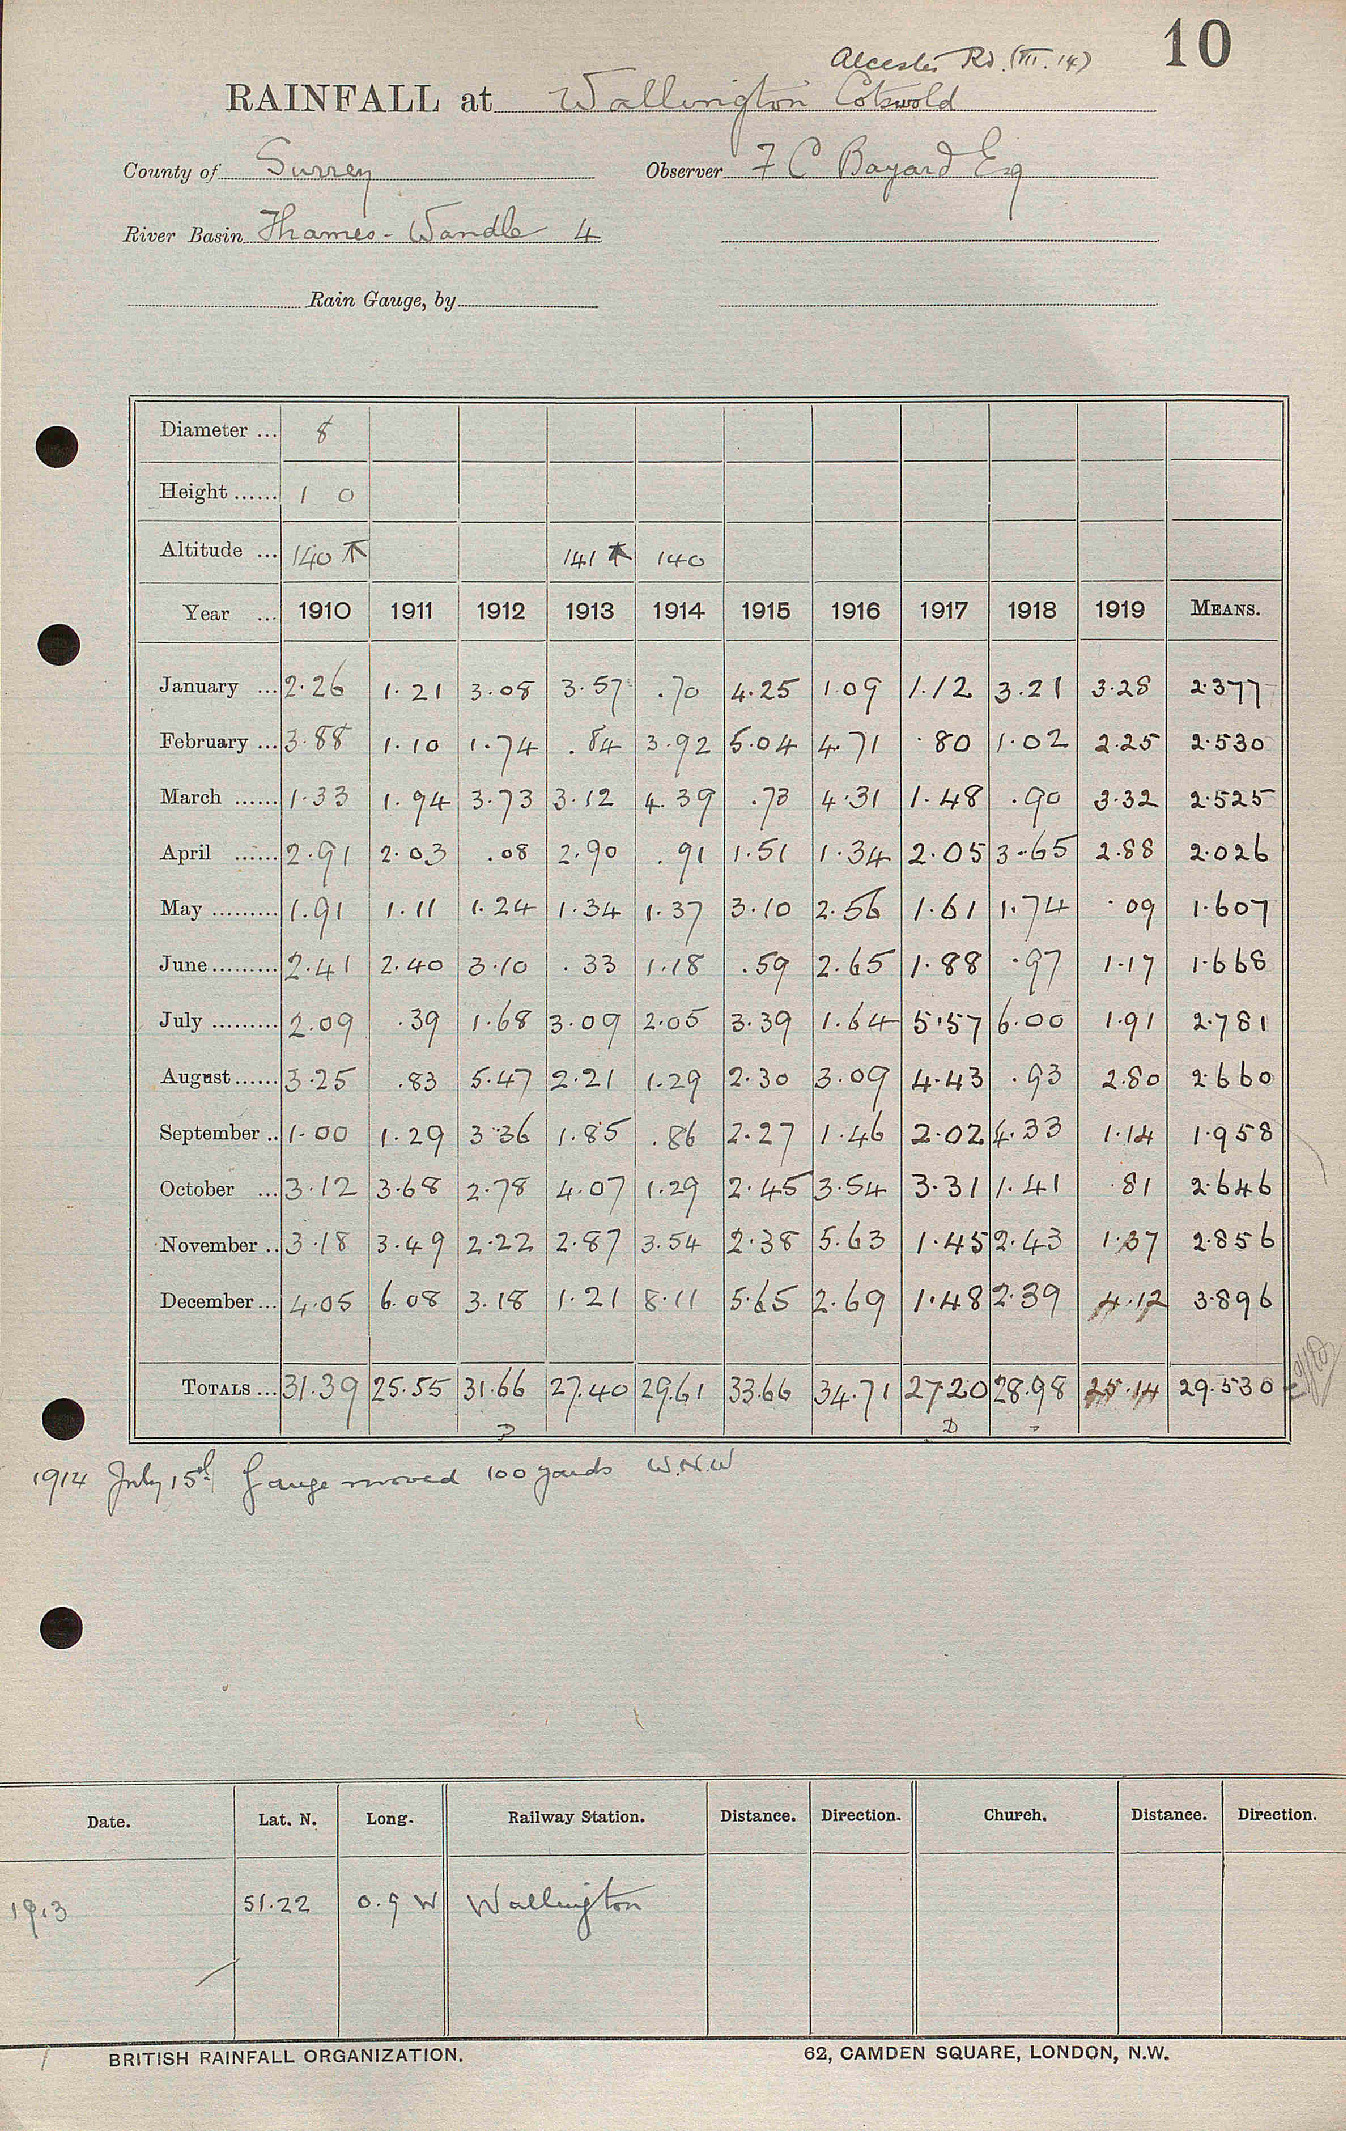 10
Alcester Rd. (III. 14)
RAINFALL at Wallington Cotswold
County of Surrey Observer F C Bayard Esq
River Basin Thames - Wandle 4
Rain Gauge, by
Diameter ... 8
Height ...... 1 0
Altitude ... 140 ↑ 141 ↑ 140
Year ... 1910 1911 1912 1913 1914 1915 1916 1917 1918 1919 MEANS.
January ... 2.26 1.21 3.08 3.57 .70 4.25 1.09 1.12 3.21 3.28 2.377
February ... 3.88 1.10 1.74 .84 3.92 5.04 4.71 .80 1.02 2.25 2.530
March ...... 1.33 1.94 3.73 3.12 4.39 .73 4.31 1.48 .90 3.32 2.525
April ...... 2.91 2.03 .08 2.90 .91 1.51 1.34 2.05 3.65 2.88 2.026
May ......... 1.91 1.11 1.24 1.34 1.37 3.10 2.56 1.61 1.74 .09 1.607
June ......... 2.41 2.40 3.10 .33 1.18 .59 2.65 1.88 .97 1.17 1.668
July ......... 2.09 .39 1.68 3.09 2.05 3.39 1.64 5.57 6.00 1.91 2.781
August ...... 3.25 .83 5.47 2.21 1.29 2.30 3.09 4.43 .93 2.80 2.660
September .. 1.00 1.29 3.36 1.85 .86 2.27 1.46 2.02 4.33 1.14 1.958
October ... 3.12 3.68 2.78 4.07 1.29 2.45 3.54 3.31 1.41 .81 2.646
November .. 3.18 3.49 2.22 2.87 3.54 2.38 5.63 1.45 2.43 1.37 2.856
December ... 4.05 6.08 3.18 1.21 8.11 5.65 2.69 1.48 2.39 4.12 3.896
TOTALS ... 31.39 25.55 31.66 27.40 29.61 33.66 34.71 27.20 28.98 25.14 29.530
D
1914 July 15th Gauge moved 100 yards W.N.W
Date. Lat. N. Long. Railway Station. Distance. Direction. Church. Distance. Direction.
1913 51.22 0.9 W Wallington
BRITISH RAINFALL ORGANIZATION. 62, CAMDEN SQUARE, LONDON, N.W.